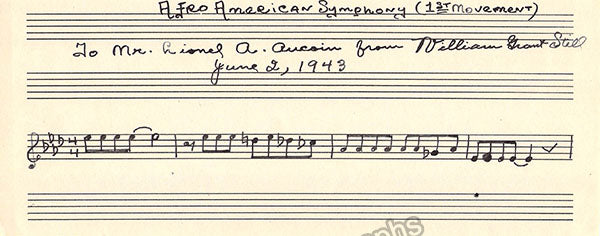 Afro American Symphony (1st Movement)
To Mr. Lionel A. Aucoin from William Grant Still
June 2, 1943
4
4
phs